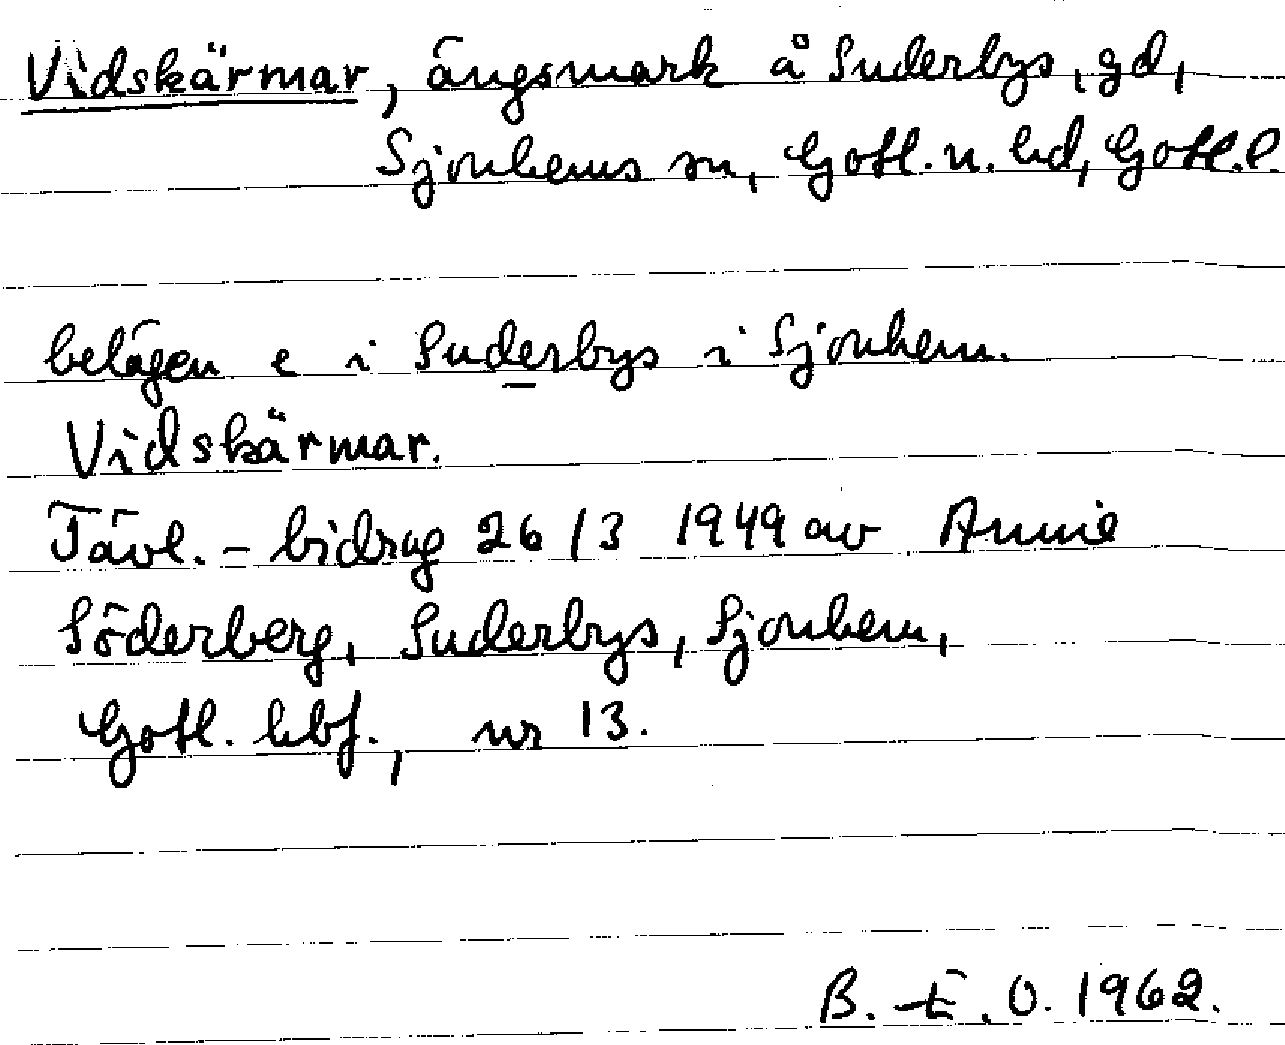 Vidskärmar, ängsmark å Suderbys, gd,
Sjonhems sn, Gotl. n. hd, Gotl. l.
belägen e i Suderbys i Sjonhem.
Vidskärmar.
Tävl. - bidrag 26/3 1949 av Annie
Söderberg, Suderbys, Sjonhem,
Gotl. hbf., nr 13.
B. - E. O. 1962.